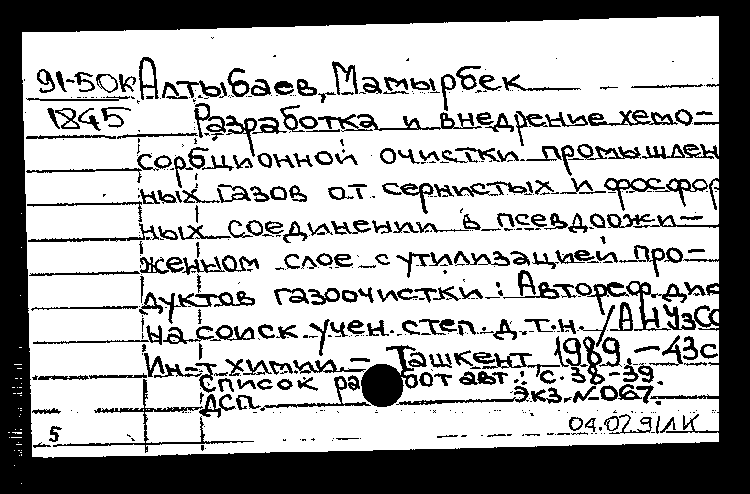 91-50К Алтыбаев, Мамырбек
1845 Разработка и внедрение хемо-
сорбционной очистки промышлен
ных газов от сернистых и фосфор
ных соединении в псевдоожи-
женном слое с утилизацией про-
дуктов газоочистки: Автореф. дис
на соиск. учен. степ. д.т.н. /АН УзСС
Ин-т химии. - Ташкент, 1989. - 43с
Список ра от авт.: с. 38-39.
ДСП. Экз. №067.
5 04.07.91 ЛК